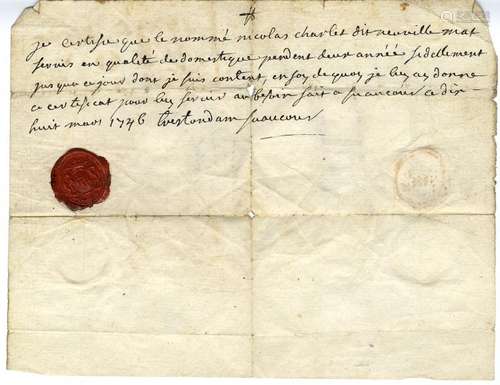 je certifie que le nommé nicolas charlet dit neuville mat
servis en qualité de domestique pendent deux année fidellement
jusquace jour dont je suis content en foy de quoy je luy ay donne
ce certificat pour luy servir au besoin fait a suaucour ce dix
huit mars 1746 suaucour